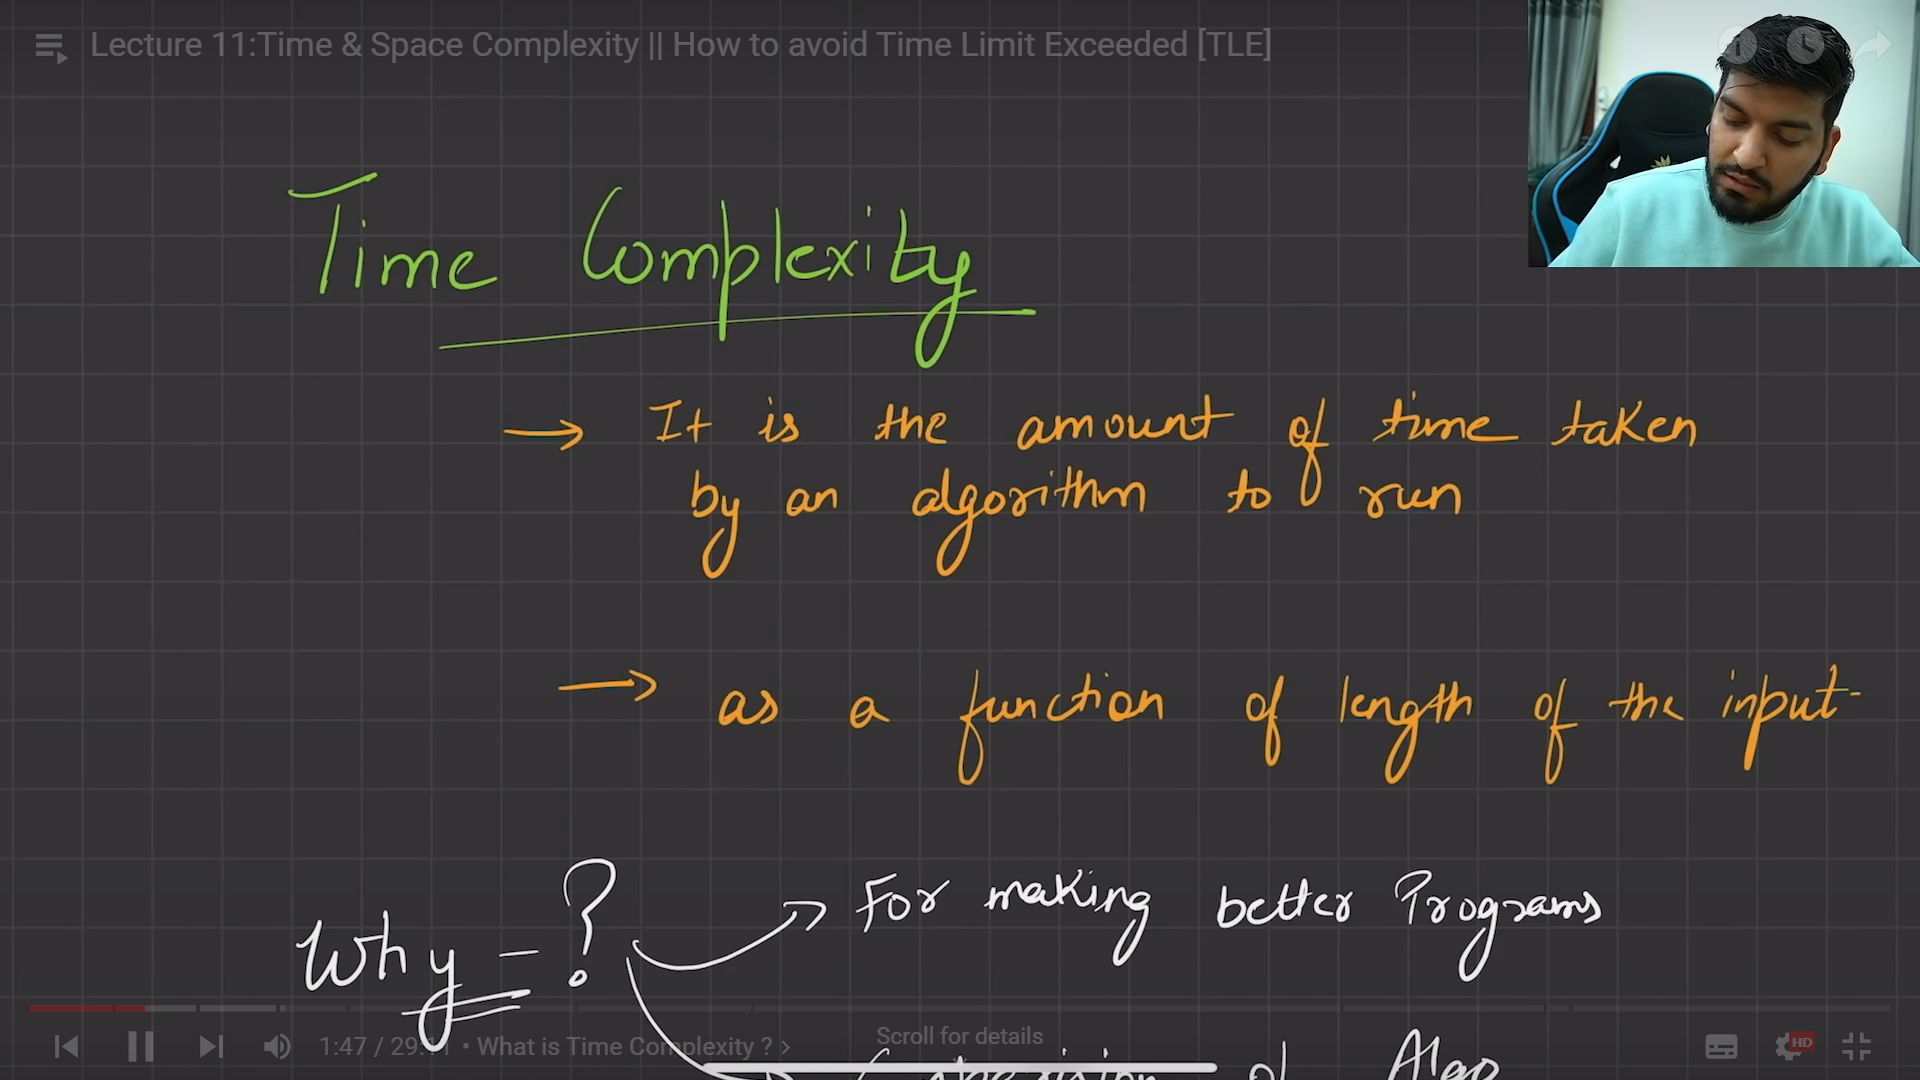 Lecture 11:Time & Space Complexity || How to avoid Time Limit Exceeded [TLE]
Time Complexity
→ It is the amount of time taken
by an algorithm to run
→ as a function of length of the input
Why = ?
→ For making better Programs
of Algo
Scroll for details
1:47 / 29: • What is Time Complexity ? >
HD